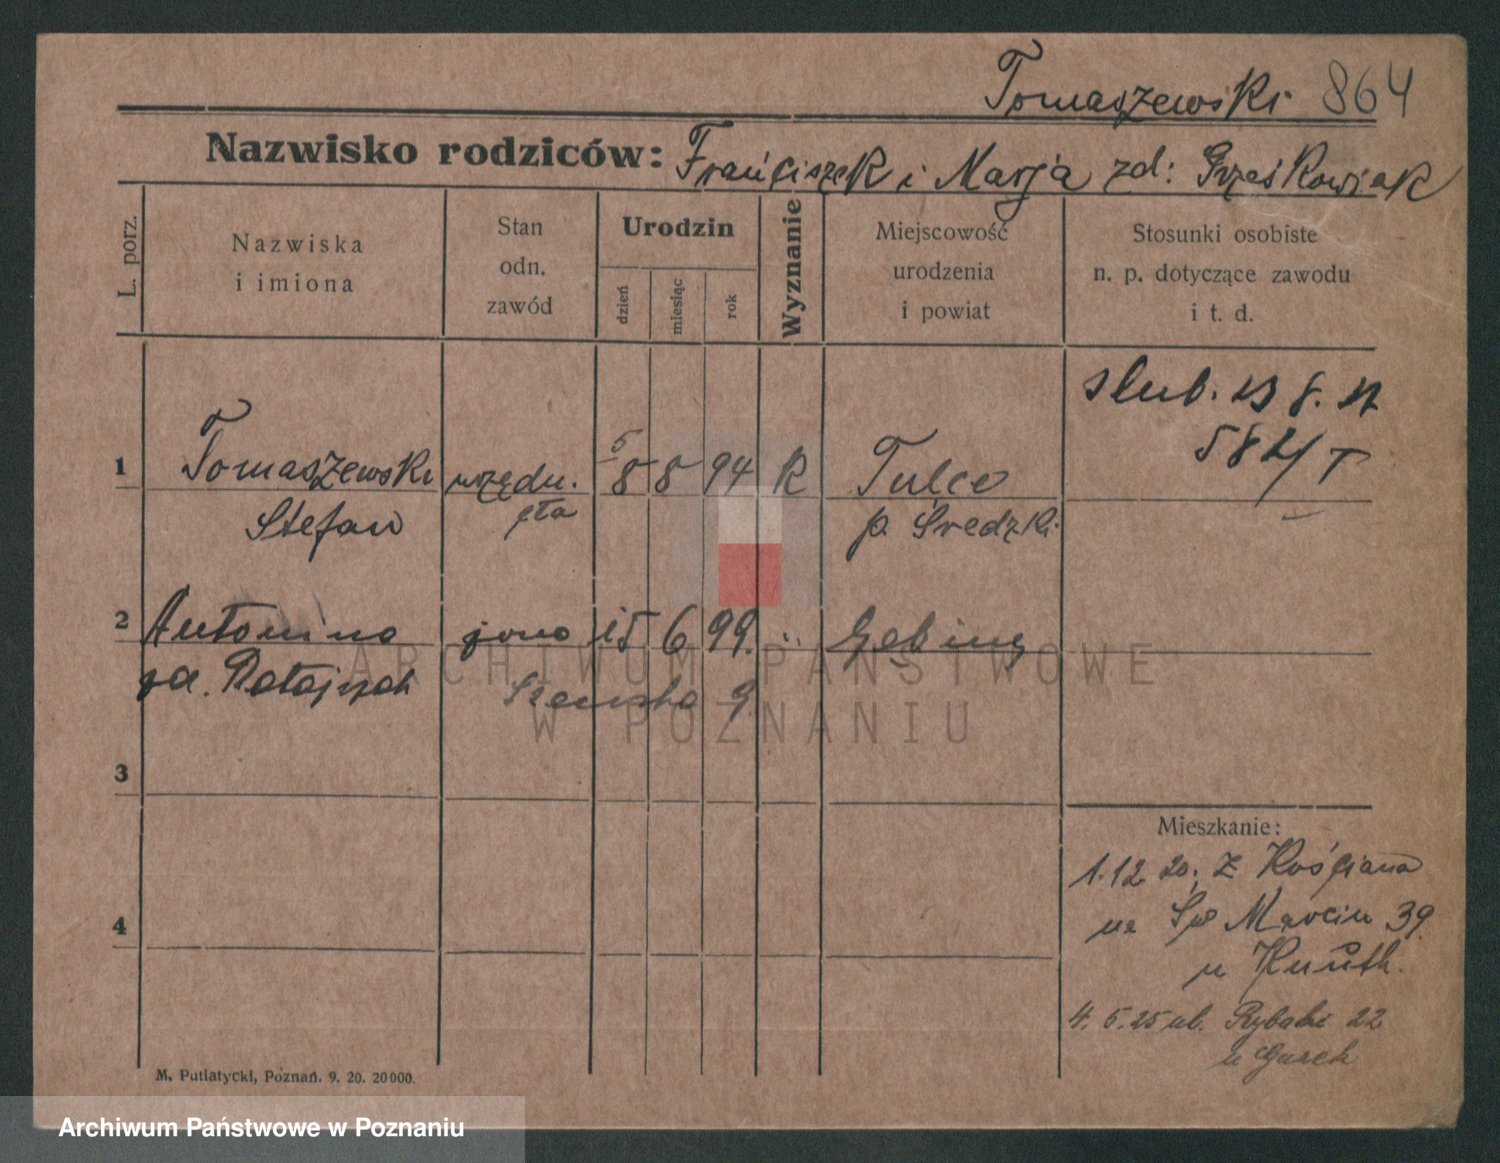 Tomaszewski 864
Nazwisko rodziców: Franciszek i Marja zd: Grześkowiak
L. porz.
Nazwiska
i imiona
Stan
odn.
zawód
Urodzin
dzień
miesiąc
rok
Wyznanie
Miejscowość
urodzenia
i powiat
Stosunki osobiste
n. p. dotyczące zawodu
i t. d.
slub. 8.
582/T
1 Tomaszewski 8 8 94 K Tulce
5
Stefan p. Średzki
2 Antonina żona 15 6 99. "
zd. Ratajczak 9
3
4
Mieszkanie:
1.12 20. z Kościana
na Św Marcin 39
u
4. 5. 25 ul. Rybaki 22
u
M. Putiatycki, Poznań. 9. 20. 20000.
ARCHIWUM PAŃSTWOWE
W POZNANIU
Archiwum Państwowe w Poznaniu